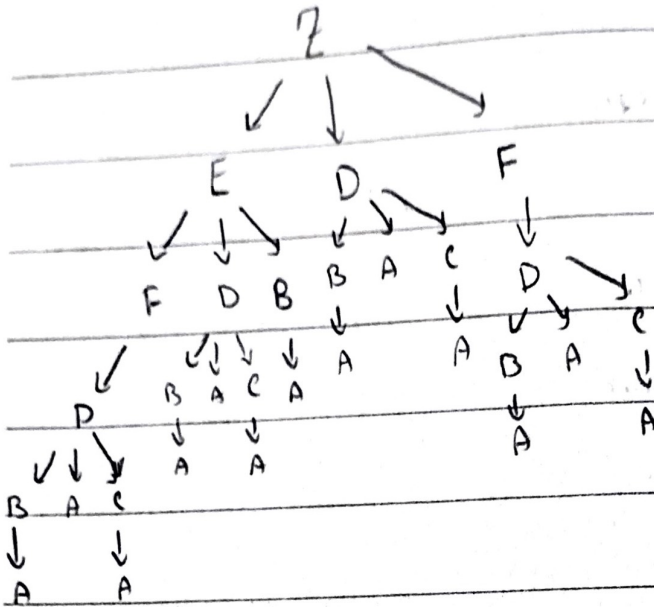 Z
E D F
F D B B A C D
D B A C A A A B A C
B A C A A A A
A A